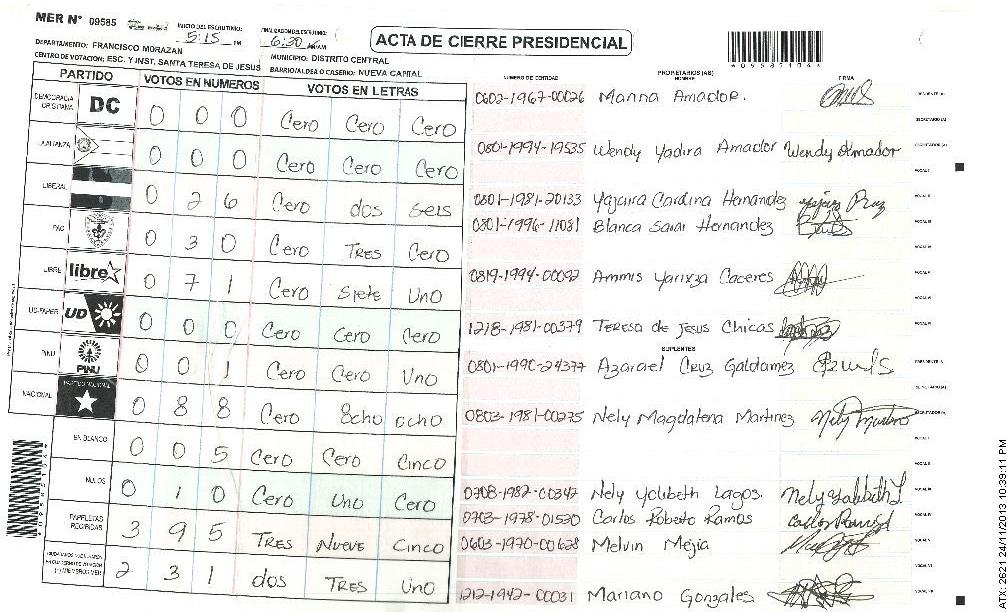 MER N° 09585
INICIO DEL ESCRUTINIO: 5:15 PM
FINALIZACION DEL ESCRUTINIO: 6:30
ACTA DE CIERRE PRESIDENCIAL
*09585104*
DEPARTAMENTO: FRANCISCO MORAZAN
MUNICIPIO: DISTRITO CENTRAL
CENTRO DE VOTACION: ESC. Y INST. SANTA TERESA DE JESUS
BARRIO/ALDEA O CASERIO: NUEVA CAPITAL
PARTIDO VOTOS EN NUMEROS VOTOS EN LETRAS
DEMOCRACIA CRISTIANA DC 0 0 0 Cero Cero Cero
ALIANZA 0 0 0 Cero Cero Cero
LIBERAL 0 2 6 Cero dos seis
PAC 0 3 0 Cero TRES Cero
LIBRE libre 0 7 1 Cero Siete Uno
UD-FAPER UD 0 0 0 Cero Cero Cero
PINU PINU 0 0 1 Cero Cero Uno
NACIONAL PARTIDO NACIONAL 0 8 8 Cero 8cho ocho
EN BLANCO 0 0 5 Cero Cero Cinco
NULOS 0 1 0 Cero Uno Cero
PAPELETAS RECIBIDAS 3 9 5 TRES Nueve Cinco
2 3 1 dos TRES Uno
NUMERO DE IDENTIDAD PROPIETARIOS (AS) NOMBRE FIRMA
0602-1967-00026 Marina Amador. PRESIDENTE (A)
SECRETARIO (A)
0801-1994-19535 Wendy Yadira Amador Wendy Amador ESCRUTADOR (A)
VOCAL I
0801-1981-20133 Yajaira Carolina Hernandez VOCAL II
0801-1996-11081 Blanca Sarai Hernandez VOCAL III
VOCAL IV
0819-1994-00092 Ammis Yarixza Caceres VOCAL V
VOCAL VI
1218-1981-00379 Teresa de Jesus Chicas
SUPLENTES
0801-1990-24377 Azarael Cruz Galdamez PRESIDENTE (A)
SECRETARIO (A)
0803-1981-00275 Nely Magdalena Martinez Nely Martinez ESCRUTADOR (A)
VOCAL I
VOCAL II
0708-1982-00342 Nely Yolibeth Lagos. VOCAL III
0703-1978-01530 Carlos Roberto Ramos VOCAL IV
0603-1970-00628 Melvin Mejia VOCAL V
VOCAL VI
1212-1942-00031 Mariano Gonzales
*09585104*
24/11/2013 10:39:11 PM